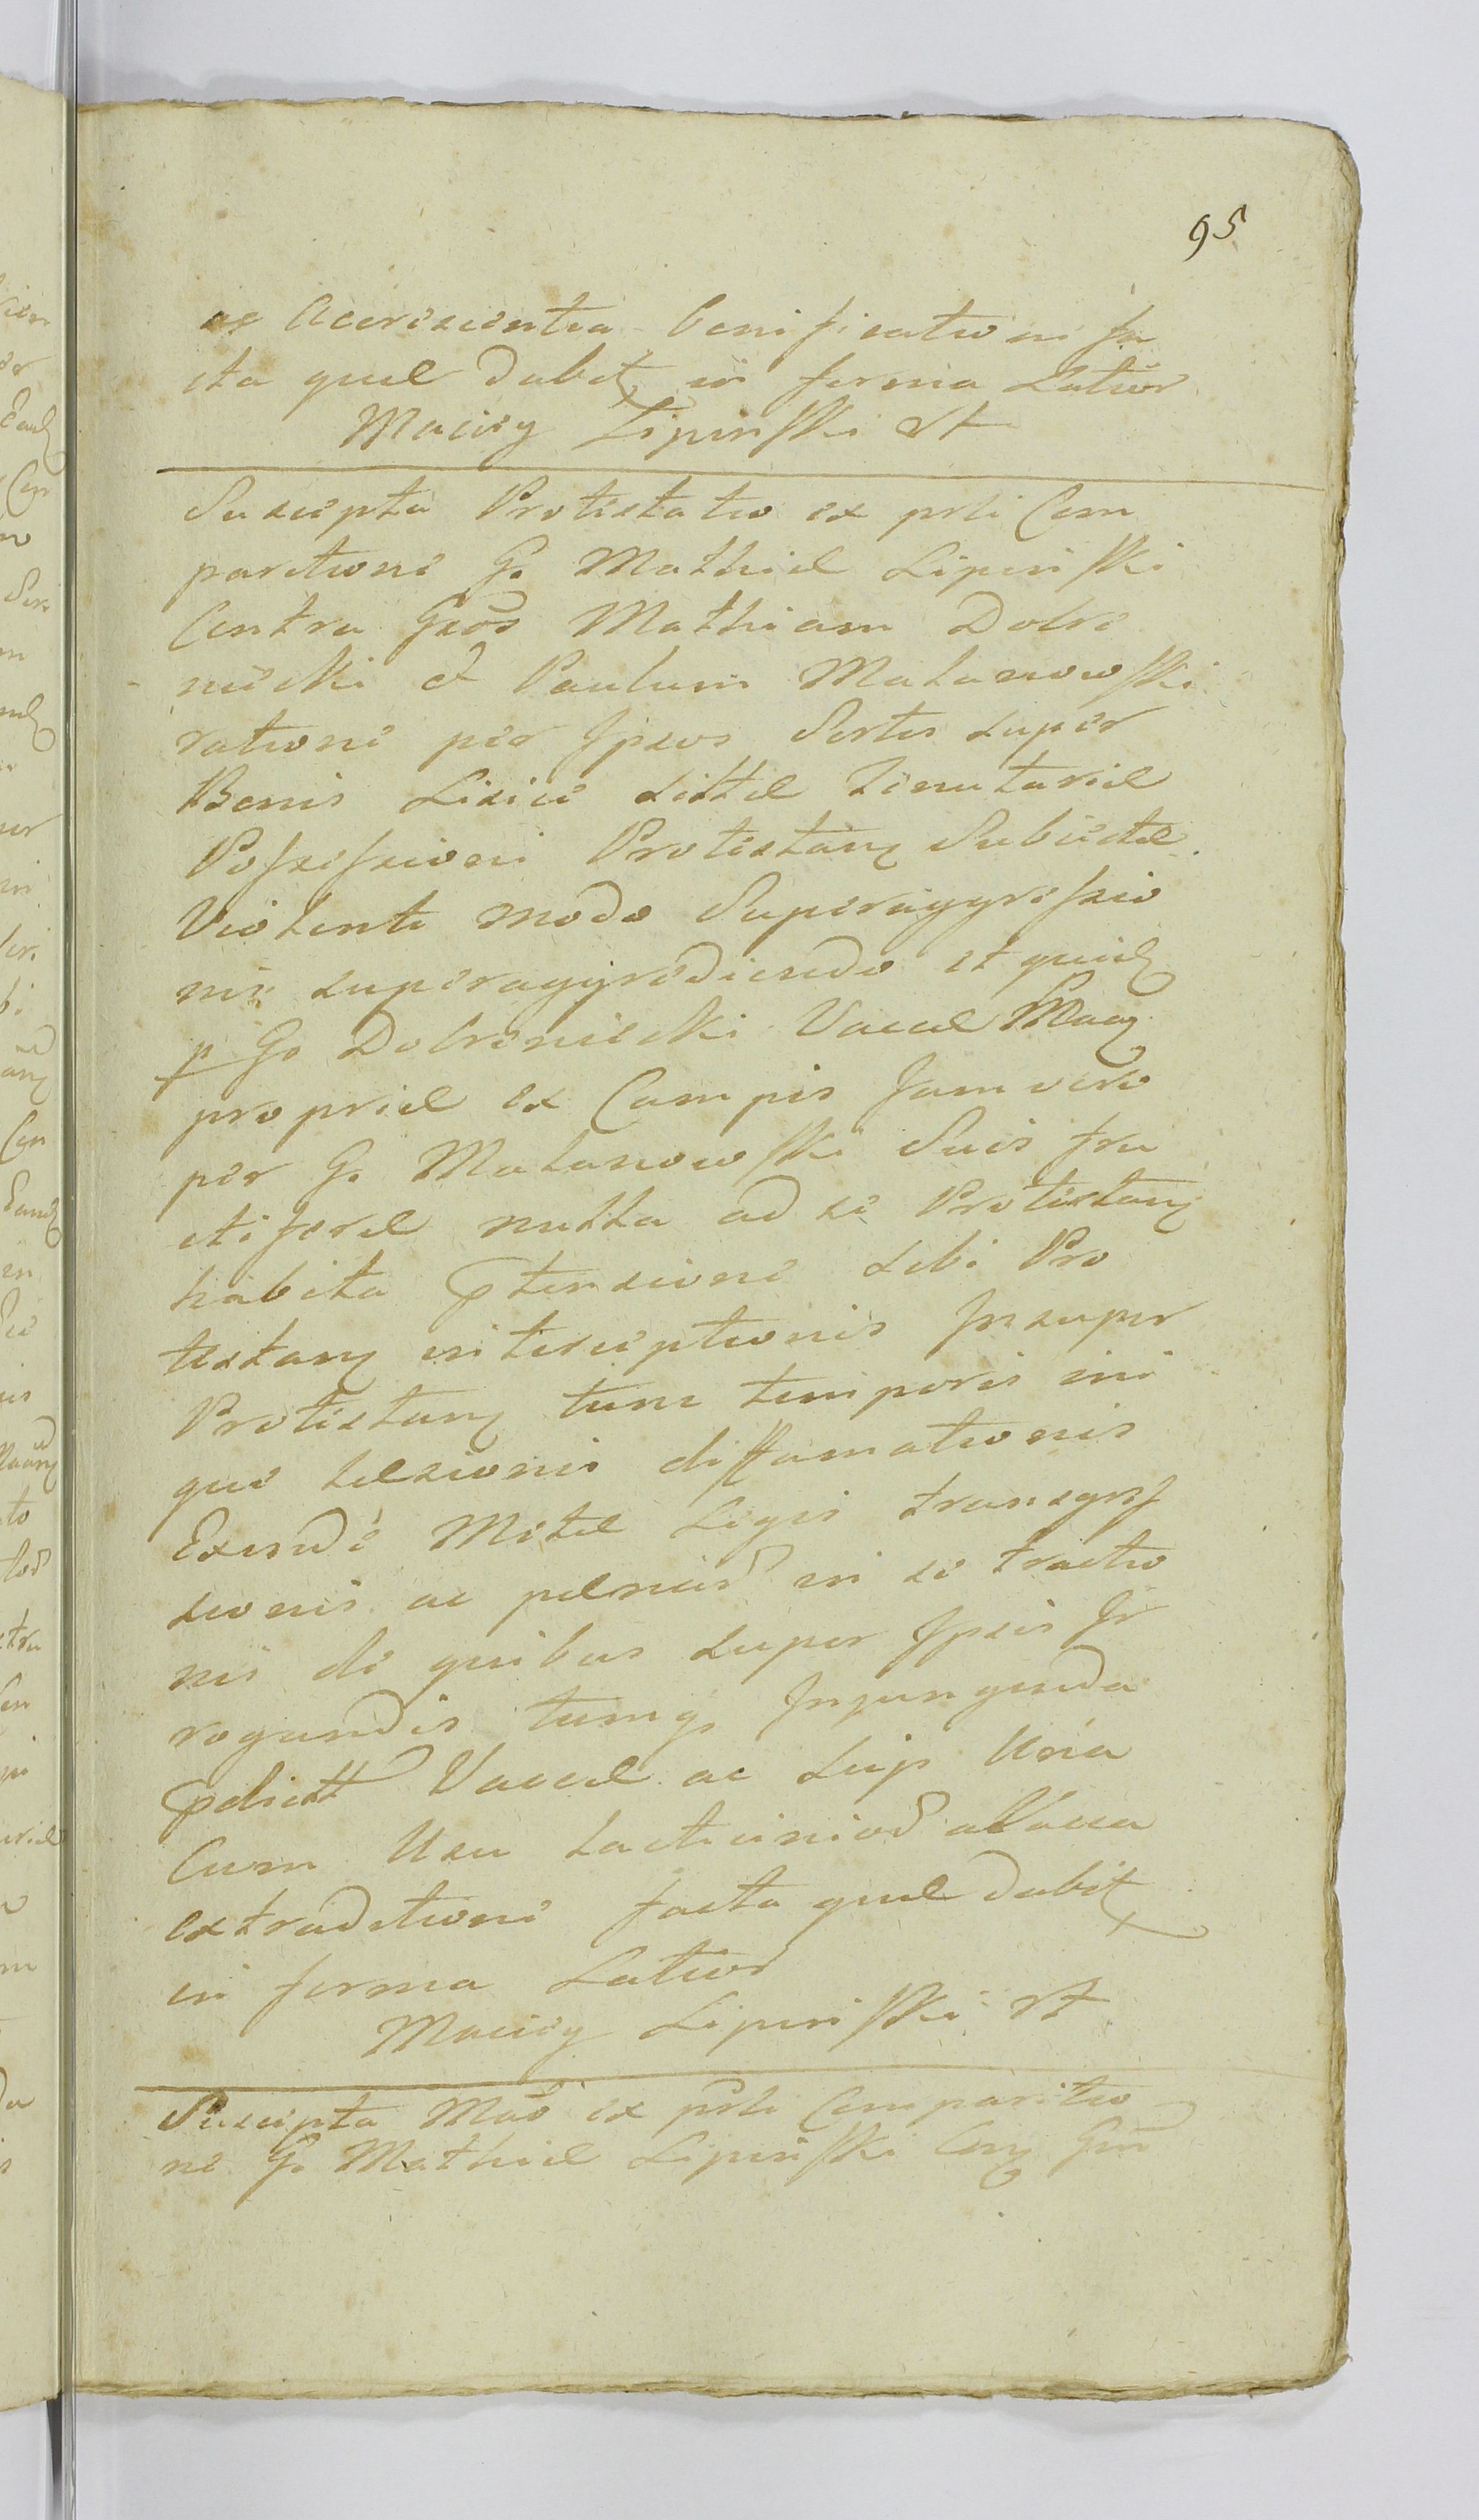 95
ac accrescentia benificationi fa
cta quae dabit in forma Latior
Maciey Lipinski
Suscepta Protestatio ex prsti Com
paritione G. Mathiae Lipinski
Contra Gsos Mathiam Dobre
niecki et Paulum Makanowski
ratione per Ipsos Sortis super
Bonis Lisice sittae Tenutariae
Possessioni Protestan Subiectae
Violenti modo Superaggressio
nis superaggrediendo et quid
p G. Dobreniecki Vaccae Mac
propriae ex Campis Jam vero
per G. Makanowski Suis fru
ctiferae nulla ad se Protestan
habita ptensione sibi Pro
testan interceptionis Insuper
Protestan tunc temporis ini
que laesionis diffamationis
Exinde Metae Legis transgres
sionis ac paenar in se tractio
nis de quibus super Ipsis Ir
rogandis tumq Injungenda
pdictt Vaccae ac Suip Una
Cum Usu Lacticinior a Vacca
extraditione facta quae dabit
in forma Latior
Maciey Lipinski
Suscepta Mao ex prsti Comparitio
ne G. Mathiae Lipinski Con Gm